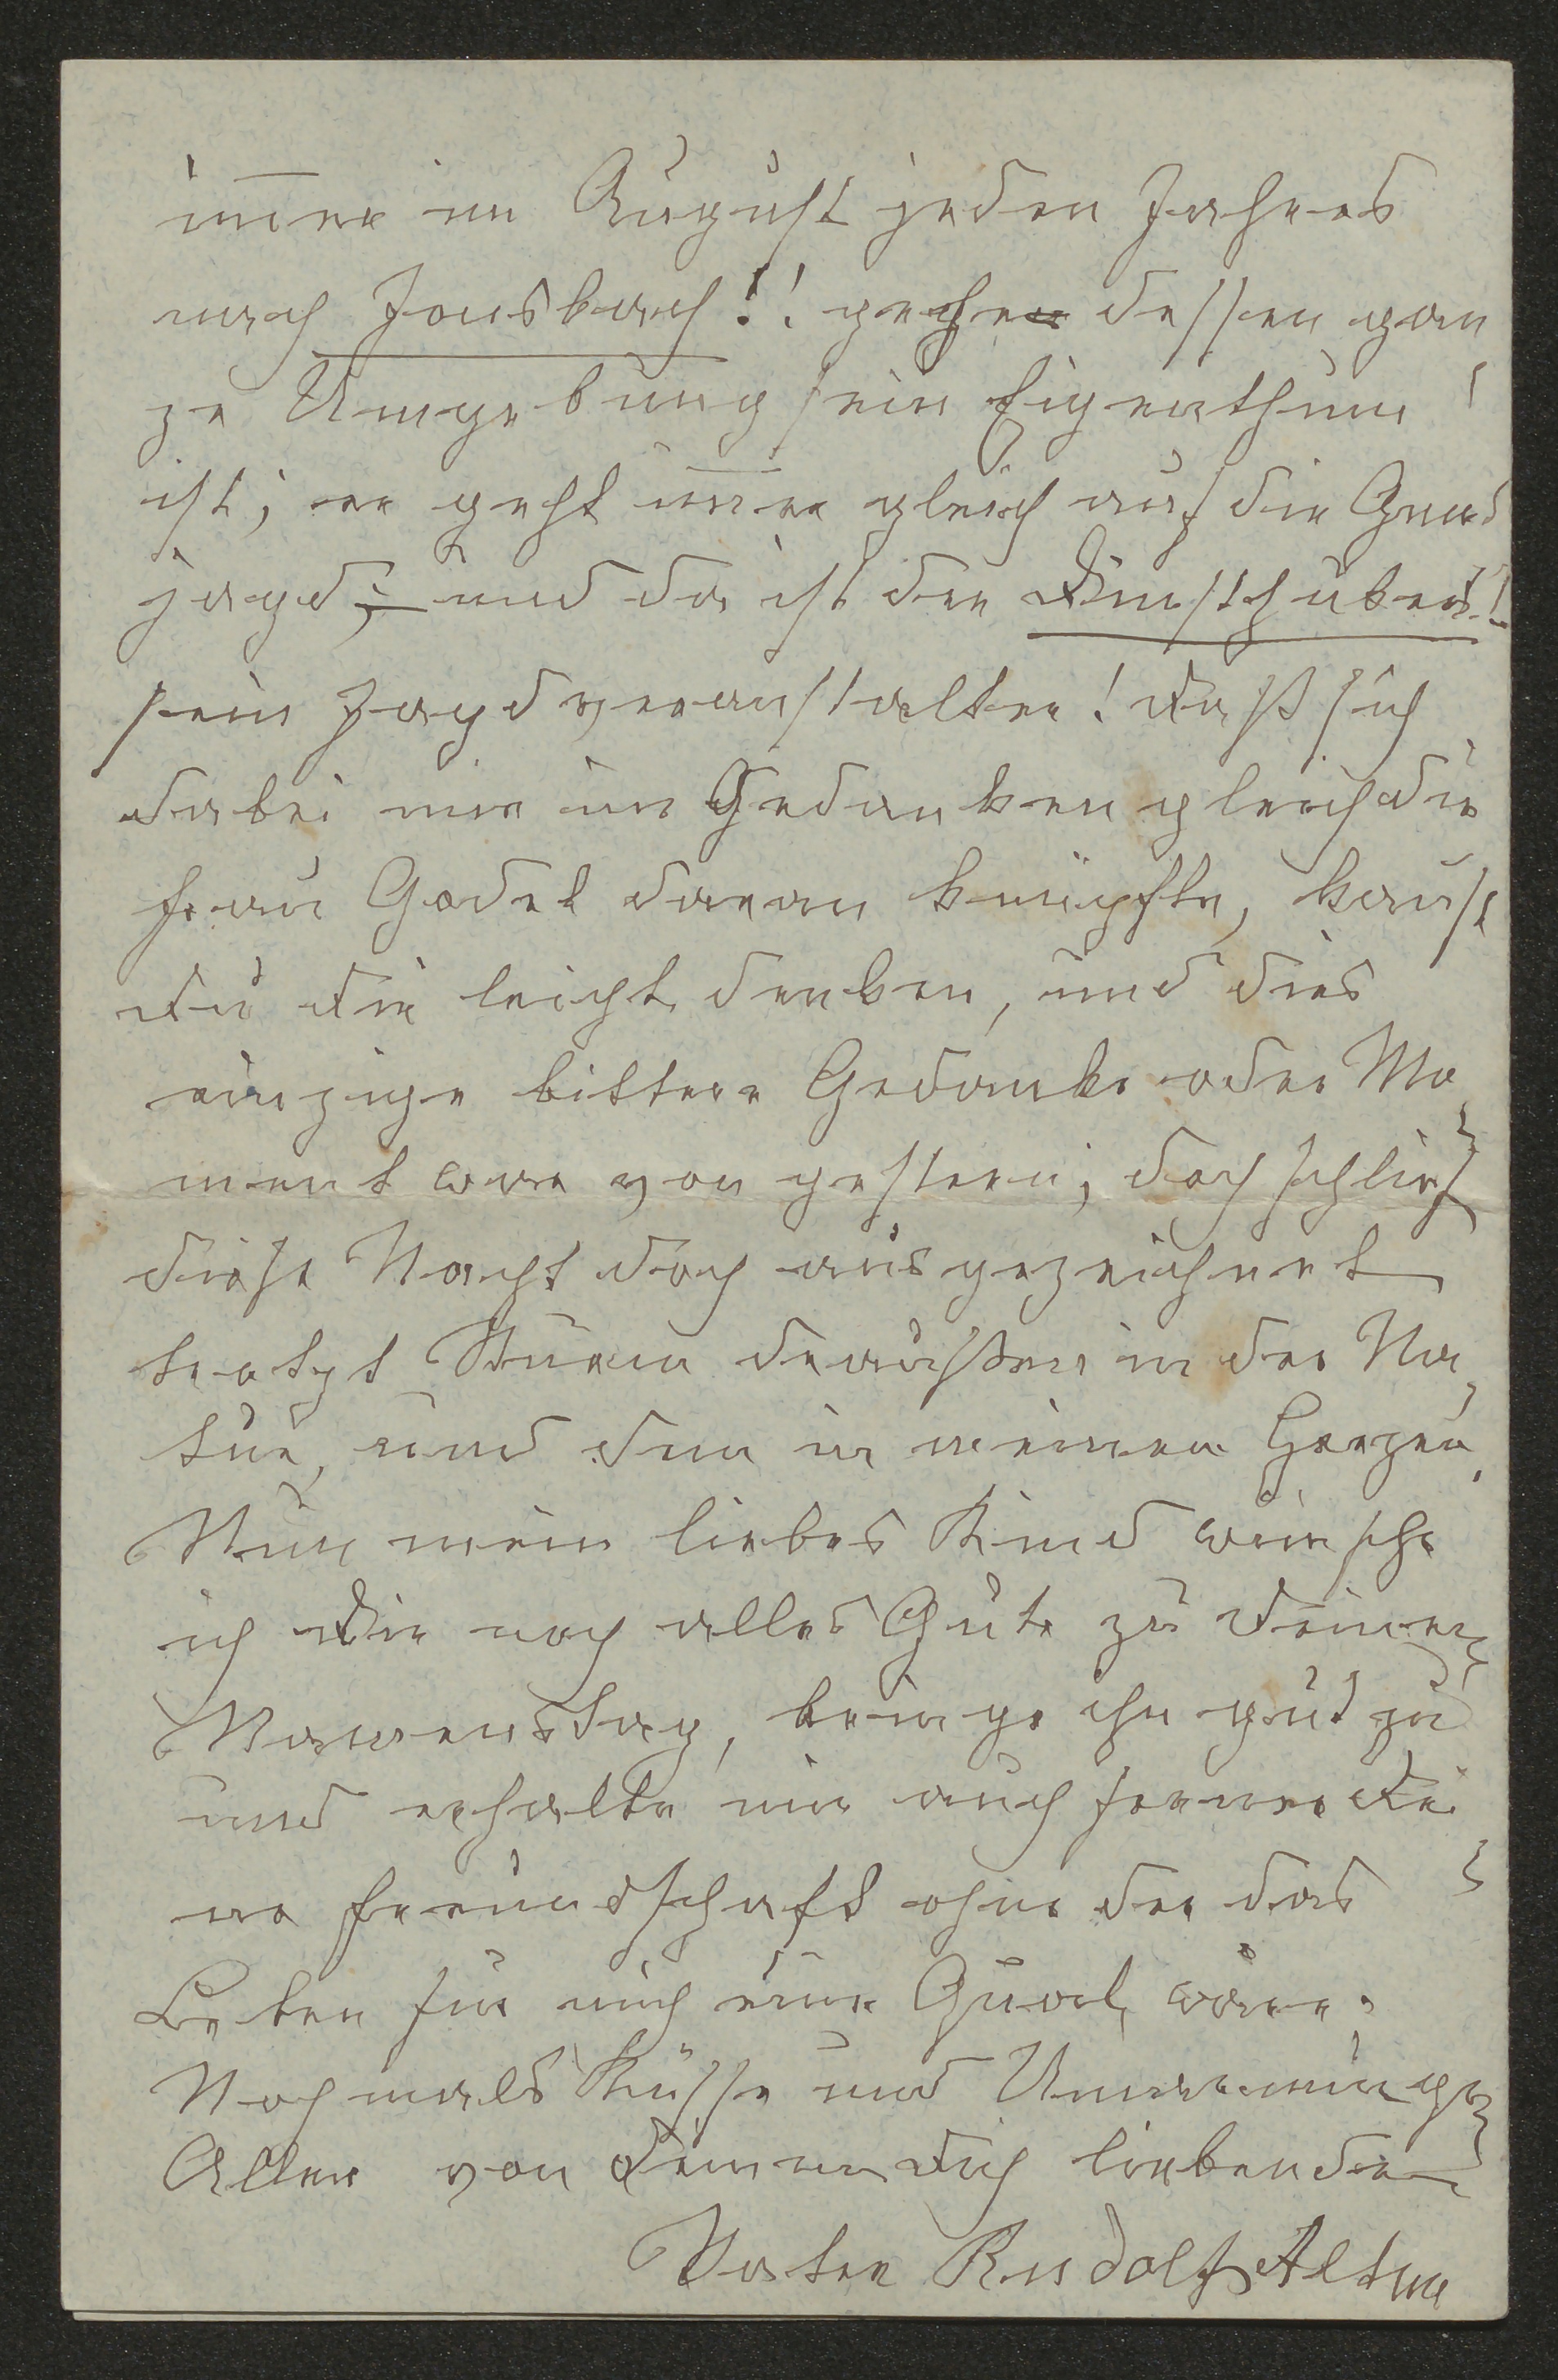 immer im August jeden Jahres
nach Jonsbach!! gehen dessen gan
ze Umgebung sein Eigenthum!
ist; er geht immer gleich auf die Gems
jagd; und da ist der Dinsthuber!!
sein Jagdveranstalter! Daß sich
dabei mir im Gedanken gleich die
Frau Godel daran knüpfte, kanst
Du Dir leicht denken, und dies
einzige bittere Gedanke oder Mo
ment war von gestern; doch schlief
diese Nacht doch ausgezeichnet
trotzt Sturm draußen in der Na,
tur, und den in meinen Herzen,
Nun mein liebes Kind wünsche
ich Dir noch alles Gute zu Deinen
Namenstag, bringe ihn gut zu
und erhalte mir auch ferner Dei
ne Freundschaft ohne der das
Leben für mich eine Quaal wäre.
Nochmals Küsse und Umarmungen
Aller von Deinen Dich liebenden
Vater Rudolf Alt